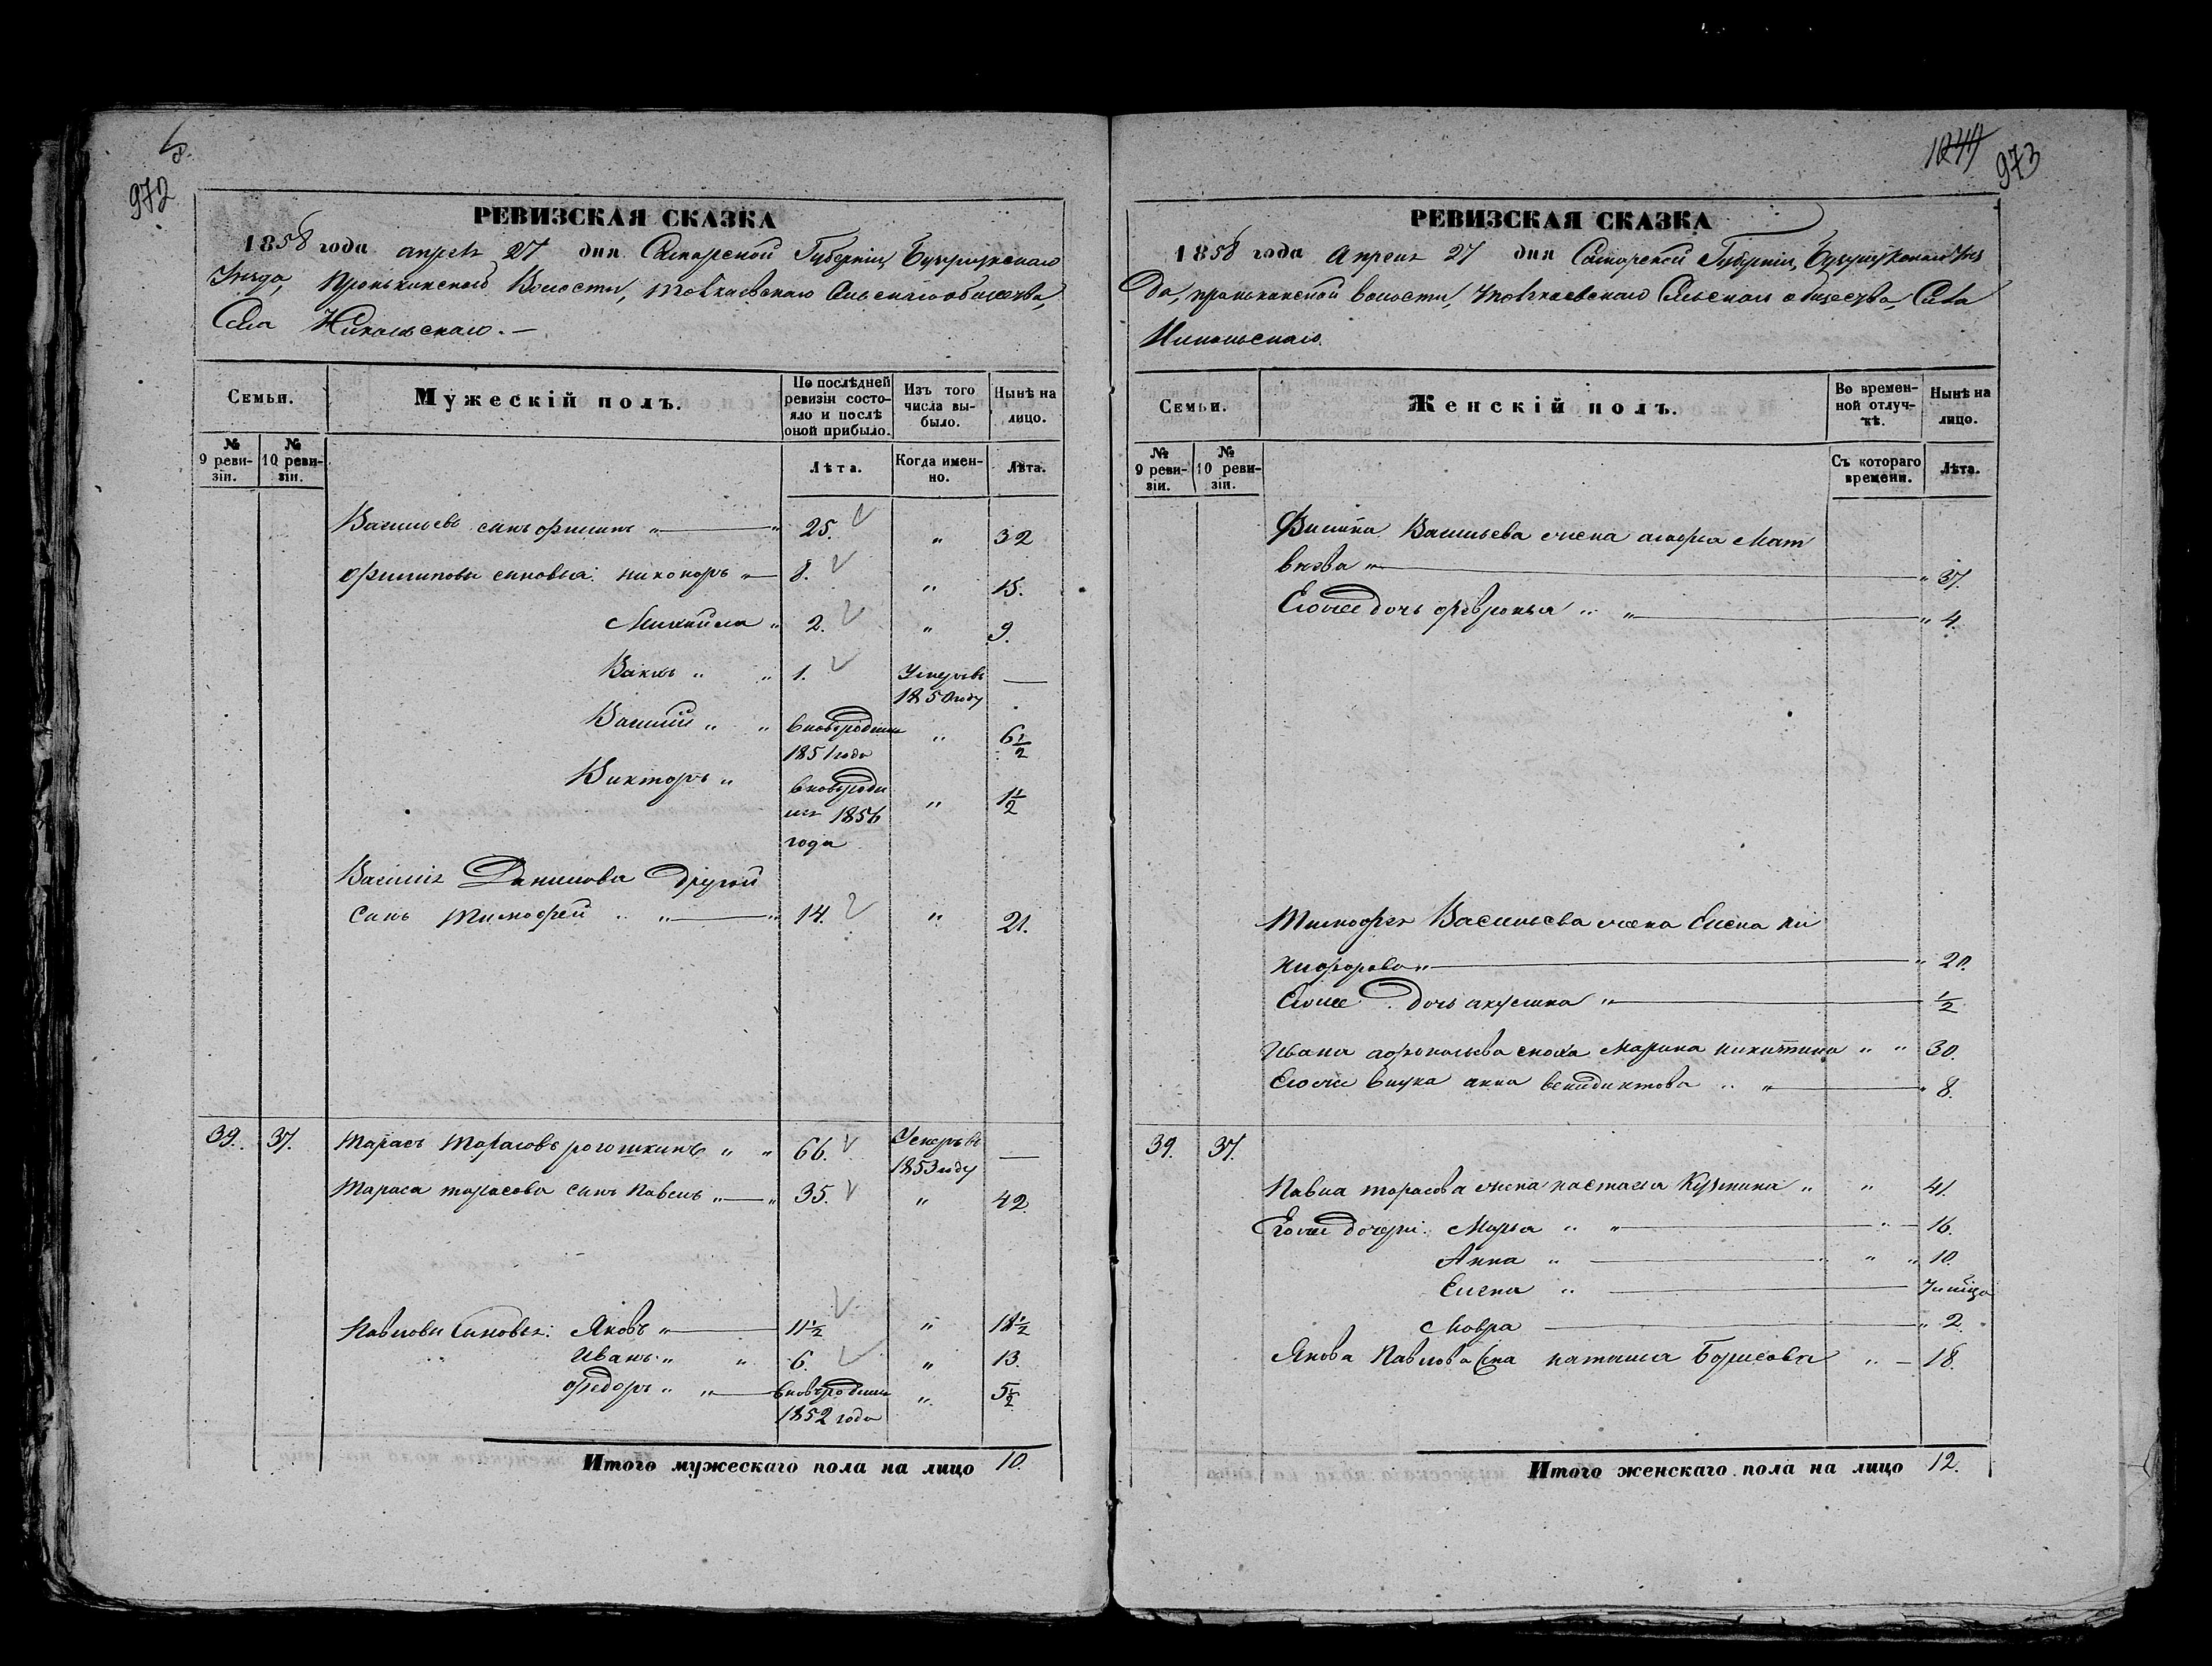 972
РЕВИЗСКАЯ СКАЗКА
1858 года апреля 27 дня Самарской Губерніи Бузулукскаго
Уезда, Пронькинской Волости, Толкаевскаго Сельскаго общества,
Села Никольскаго. —
Семьи.
Мужескій полъ.
По послѣдней ревизіи состояло и послѣ оной прибыло.
Изъ того числа выбыло.
Нынѣ на лицо.
№ 9 ревизіи.
№ 10 ревизіи.
Лѣта.
Когда именно.
Лѣта.
Васильевъ сынъ филипъ „ — „ 25. „ 32
филиповы сыновья: никоноръ „ — 8. „ 15.
Михайла „ 2. „ 9.
Вакхъ „ „ 1. Умеръ въ —
1850 году
Василій „ „ вновьрожден „ 6½
1851 года
Викторъ „ вновьрожде „ 1½
1856
года
Василія Данилова другой
сынъ тимофей „ „ — „ 14. „ 21.
39. 37. Тарасъ Тарасовъ рогошкинъ „ „ 66. Умеръ въ —
1853 году
Тараса тарасова сынъ Павелъ „ — „ 35. „ 42.
Павловы Сыновья: Яковъ „ — 11½ „ 18½
Иванъ „ „ 6. „ 13.
федоръ „ „ — вновьрожден „ 5½
1852 года
Итого мужескаго пола на лицо 10.
973
РЕВИЗСКАЯ СКАЗКА
1858 года Апреля 27 дня Самарской Губерніи, Бузулукскаго Уез
да, пронькинской волости, толкаевскаго Сельскаго общества, Села
Никольскаго.
Семьи.
Женскій полъ.
Во временной отлучкѣ.
Нынѣ на лицо.
№ 9 ревизіи.
№ 10 ревизіи.
Съ котораго времени.
Лѣта.
Филипа Васильева жена Мат
веева „ — „ 37.
Егоже дочь февронья „ „ — „ 4.
Тимофея Васильева жена Елена ни
кифорова „ — „ 20.
Егоже дочь акулина „ — ½
Ивана афонасьева сноха Марина никитина „ „ 30.
Егоже внука анна венидиктова „ „ — „ 8.
39. 37.
Павла тарасова жена настасья Кузмина „ „ 41.
Егоже дочери: Марья „ „ — „ — 16.
Анна „ — „ „ 10.
Елена „ —
Мавра — „ 2.
Якова Павлова наталья Борисова „ — 18.
Итого женскаго пола на лицо 12.